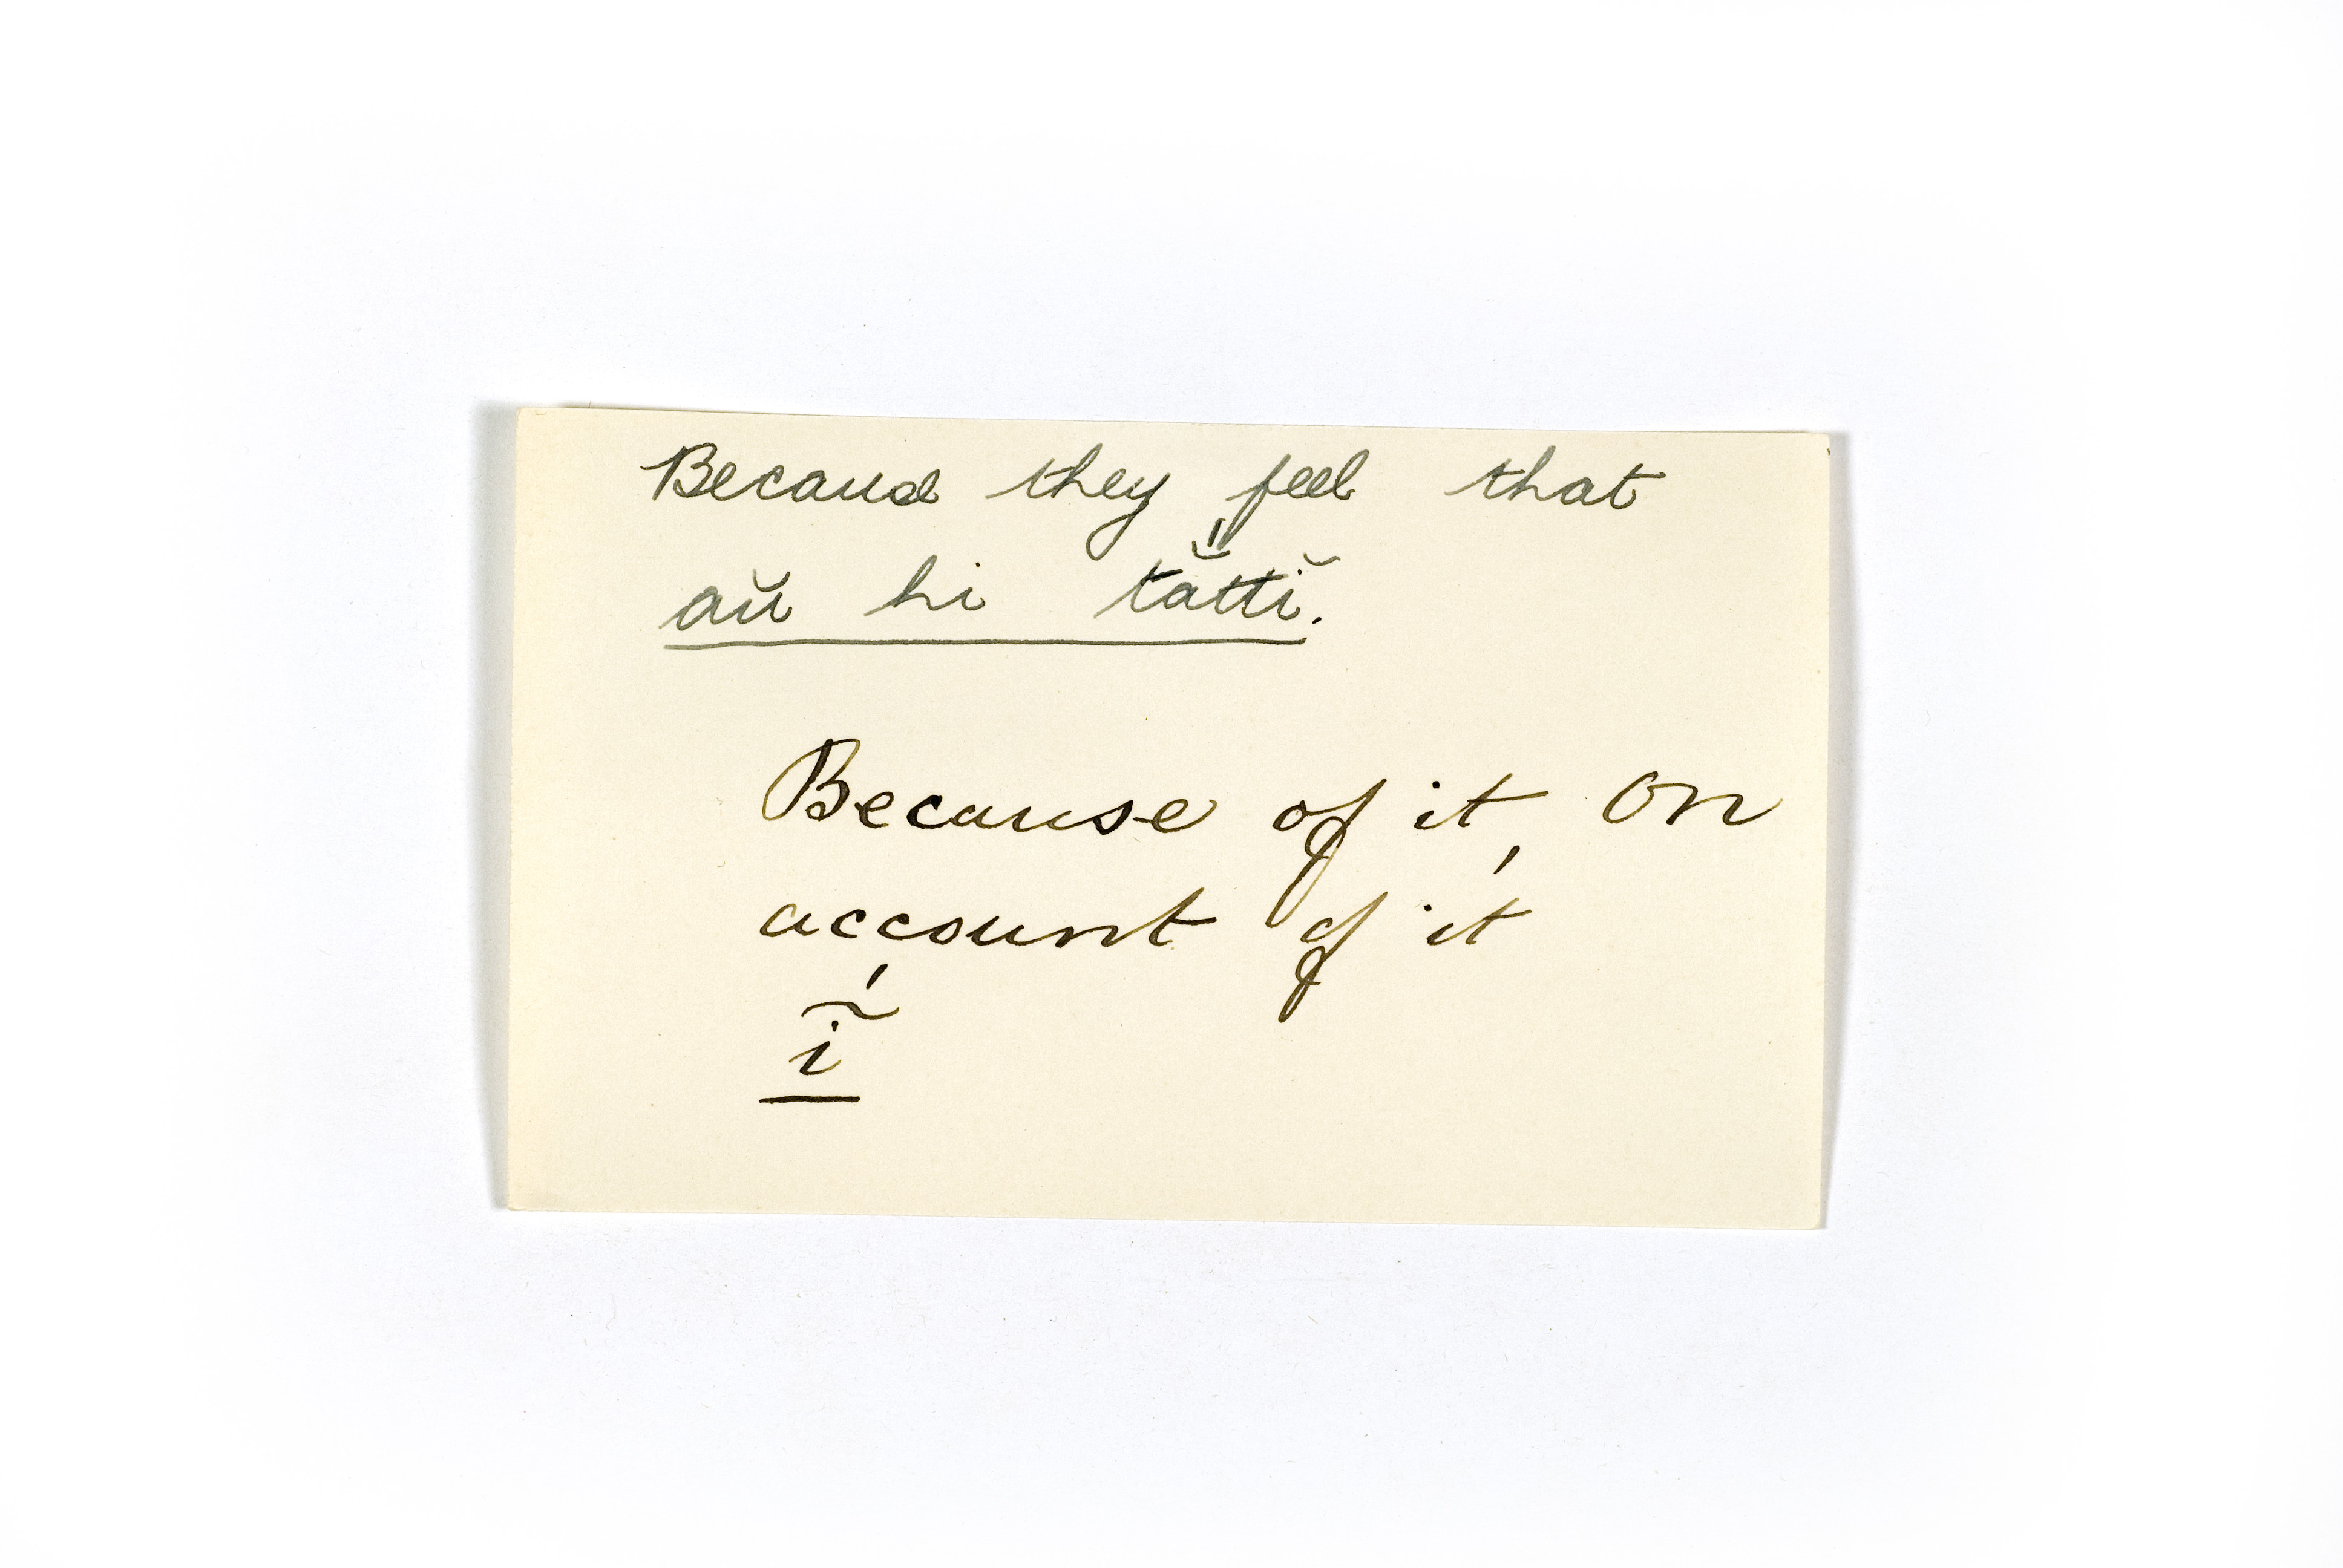 Because they feel that
aŭ hi tă̋ttĭ.
Because of it, On
account of it
ĩ́